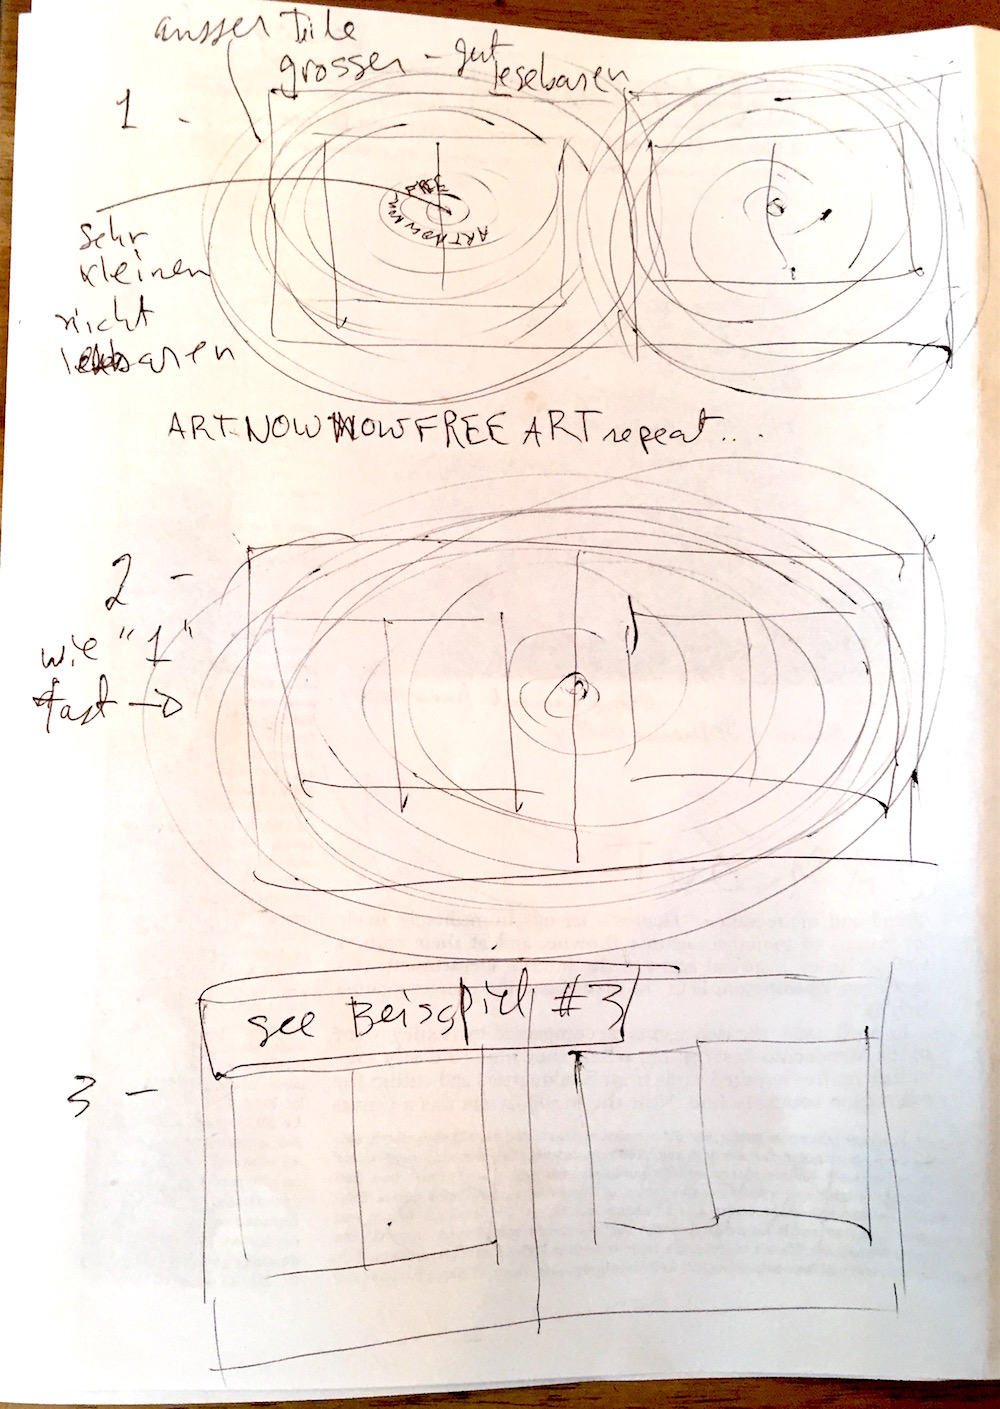 ausser Tile
grosser - gut
lesebaren
1 -
ART NOW
sehr
kleinen
nicht
baren
ART NOW NOW FREE ART repeat...
2 -
wie "1"
fast →
see Beispiel #3
3 -